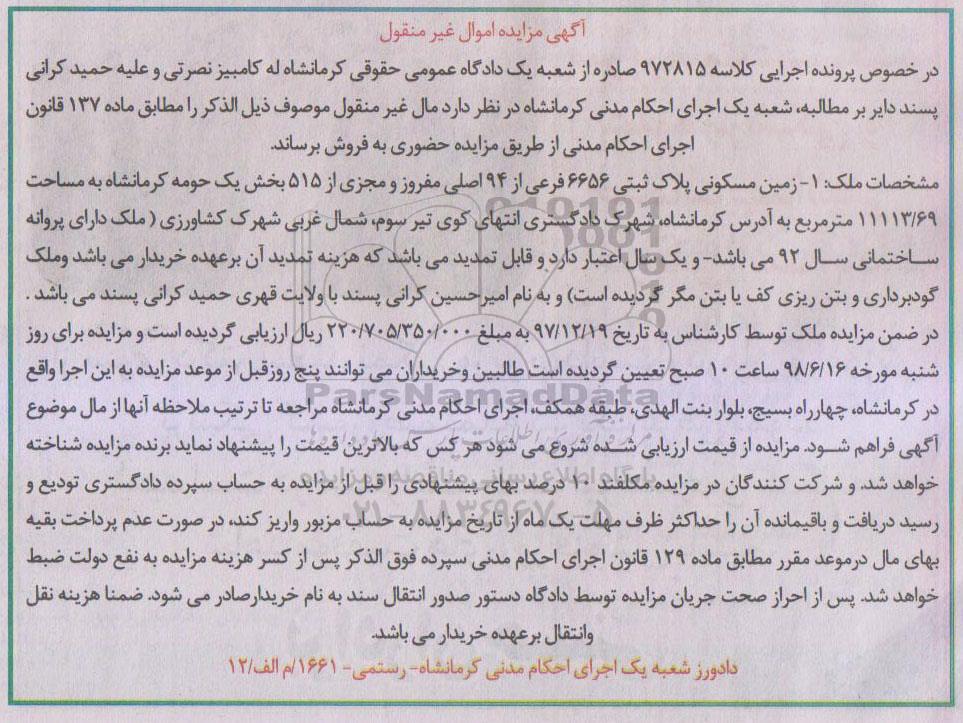 آگهی مزایده اموال غیر منقول
در خصوص پرونده اجرایی کلاسه ۹۷۲۸۱۵ صادره از شعبه یک دادگاه عمومی حقوقی کرمانشاه له کامبیز نصرتی و علیه حمید کرانی
پسند دایر بر مطالبه، شعبه یک اجرای احکام مدنی کرمانشاه در نظر دارد مال غیر منقول موصوف ذیل الذکر را مطابق ماده ۱۳۷ قانون
اجرای احکام مدنی از طریق مزایده حضوری به فروش برساند.
مشخصات ملک: ۱- زمین مسکونی پلاک ثبتی ۶۶۵۶ فرعی از ۹۴ اصلی مفروز و مجزی از ۵۱۵ بخش یک حومه کرمانشاه به مساحت
۱۱۱۱۳/۶۹ مترمربع به آدرس کرمانشاه، شهرک دادگستری انتهای کوی تیر سوم، شمال غربی شهرک کشاورزی ( ملک دارای پروانه
ساختمانی سال ۹۲ می باشد- و یک سال اعتبار دارد و قابل تمدید می باشد که هزینه تمدید آن برعهده خریدار می باشد وملک
گودبرداری و بتن ریزی کف یا بتن مگر گردیده است) و به نام امیرحسین کرانی پسند با ولایت قهری حمید کرانی پسند می باشد .
در ضمن مزایده ملک توسط کارشناس به تاریخ ۹۷/۱۲/۱۹ به مبلغ ۲۲۰/۷۰۵/۳۵۰/۰۰۰ ریال ارزیابی گردیده است و مزایده برای روز
شنبه مورخه ۹۸/۶/۱۶ ساعت ۱۰ صبح تعیین گردیده است طالبین وخریداران می توانند پنج روزقبل از موعد مزایده به این اجرا واقع
در کرمانشاه، چهارراه بسیج، بلوار بنت الهدی، طبقه همکف، اجرای احکام مدنی کرمانشاه مراجعه تا ترتیب ملاحظه آنها از مال موضوع
آگهی فراهم شود. مزایده از قیمت ارزیابی شده شروع می شود هر کس که بالاترین قیمت را پیشنهاد نماید برنده مزایده شناخته
خواهد شد. و شرکت کنندگان در مزایده مکلفند ۱۰ درصد بهای پیشنهادی را قبل از مزایده به حساب سپرده دادگستری تودیع و
رسید دریافت و باقیمانده آن را حداکثر ظرف مهلت یک ماه از تاریخ مزایده به حساب مزبور واریز کند، در صورت عدم پرداخت بقیه
بهای مال درموعد مقرر مطابق ماده ۱۲۹ قانون اجرای احکام مدنی سپرده فوق الذکر پس از کسر هزینه مزایده به نفع دولت ضبط
خواهد شد. پس از احراز صحت جریان مزایده توسط دادگاه دستور صدور انتقال سند به نام خریدارصادر می شود. ضمنا هزینه نقل
وانتقال برعهده خریدار می باشد.
دادورز شعبه یک اجرای احکام مدنی کرمانشاه- رستمی- ۱۶۶۱/م الف/۱۲
ParsNamadData
پایگاه اطلاع رسانی مناقصه و مزایده
۰۲۱-۸۸۳۴۹۶۷۰-۵